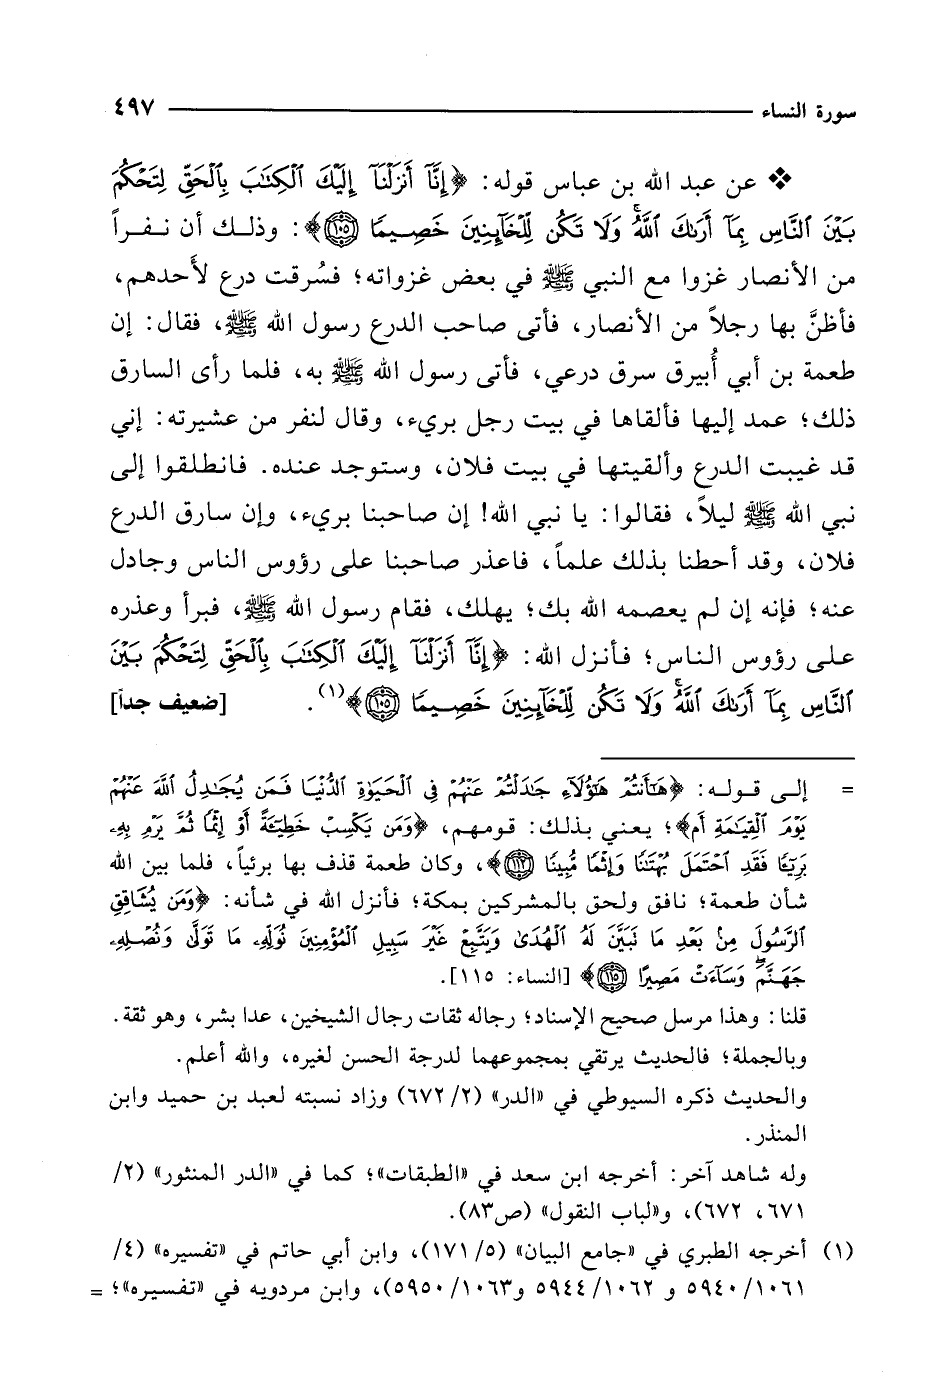 سورة النساء ٤٩٧
❖ عن عبد الله بن عباس قوله: ﴿إِنَّآ أَنزَلْنَآ إِلَيْكَ ٱلْكِتَٰبَ بِٱلْحَقِّ لِتَحْكُمَ
بَيْنَ ٱلنَّاسِ بِمَآ أَرَىٰكَ ٱللَّهُ ۚ وَلَا تَكُن لِّلْخَآئِنِينَ خَصِيمًا ﴿١٠٥﴾﴾: وذلك أن نفراً
من الأنصار غزوا مع النبي ﷺ في بعض غزواته؛ فسُرقت درع لأحدهم،
فأظنَّ بها رجلاً من الأنصار، فأتى صاحب الدرع رسول الله ﷺ، فقال: إن
طعمة بن أبي أُبيرق سرق درعي، فأتى رسول الله ﷺ به، فلما رأى السارق
ذلك؛ عمد إليها فألقاها في بيت رجل بريء، وقال لنفر من عشيرته: إني
قد غيبت الدرع وألقيتها في بيت فلان، وستوجد عنده. فانطلقوا إلى
نبي الله ﷺ ليلاً، فقالوا: يا نبي الله! إن صاحبنا بريء، وإن سارق الدرع
فلان، وقد أحطنا بذلك علماً، فاعذر صاحبنا على رؤوس الناس وجادل
عنه؛ فإنه إن لم يعصمه الله بك؛ يهلك، فقام رسول الله ﷺ، فبرأ وعذره
على رؤوس الناس؛ فأنزل الله: ﴿إِنَّآ أَنزَلْنَآ إِلَيْكَ ٱلْكِتَٰبَ بِٱلْحَقِّ لِتَحْكُمَ بَيْنَ
ٱلنَّاسِ بِمَآ أَرَىٰكَ ٱللَّهُ ۚ وَلَا تَكُن لِّلْخَآئِنِينَ خَصِيمًا ﴿١٠٥﴾﴾(١). [ضعيف جداً]
= إلى قوله: ﴿هَٰٓأَنتُمْ هَٰٓؤُلَآءِ جَٰدَلْتُمْ عَنْهُمْ فِى ٱلْحَيَوٰةِ ٱلدُّنْيَا فَمَن يُجَٰدِلُ ٱللَّهَ عَنْهُمْ
يَوْمَ ٱلْقِيَٰمَةِ أَم﴾؛ يعني بذلك: قومهم، ﴿وَمَن يَكْسِبْ خَطِيٓـَٔةً أَوْ إِثْمًا ثُمَّ يَرْمِ بِهِۦ
بَرِيٓـًٔا فَقَدِ ٱحْتَمَلَ بُهْتَٰنًا وَإِثْمًا مُّبِينًا ﴿١١٢﴾﴾، وكان طعمة قذف بها برئياً، فلما بين الله
شأن طعمة؛ نافق ولحق بالمشركين بمكة؛ فأنزل الله في شأنه: ﴿وَمَن يُشَاقِقِ
ٱلرَّسُولَ مِنۢ بَعْدِ مَا تَبَيَّنَ لَهُ ٱلْهُدَىٰ وَيَتَّبِعْ غَيْرَ سَبِيلِ ٱلْمُؤْمِنِينَ نُوَلِّهِۦ مَا تَوَلَّىٰ وَنُصْلِهِۦ
جَهَنَّمَ ۖ وَسَآءَتْ مَصِيرًا ﴿١١٥﴾﴾ [النساء: ١١٥].
قلنا: وهذا مرسل صحيح الإسناد؛ رجاله ثقات رجال الشيخين، عدا بشر، وهو ثقة.
وبالجملة؛ فالحديث يرتقي بمجموعهما لدرجة الحسن لغيره، والله أعلم.
والحديث ذكره السيوطي في «الدر» (٢/ ٦٧٢) وزاد نسبته لعبد بن حميد وابن
المنذر.
وله شاهد آخر: أخرجه ابن سعد في «الطبقات»؛ كما في «الدر المنثور» (٢/
٦٧١، ٦٧٢)، و«لباب النقول» (ص٨٣).
(١) أخرجه الطبري في «جامع البيان» (٥/ ١٧١)، وابن أبي حاتم في «تفسيره» (٤/
١٠٦١/ ٥٩٤٠ و ١٠٦٢/ ٥٩٤٤ و١٠٦٣/ ٥٩٥٠)، وابن مردويه في «تفسيره»؛ =